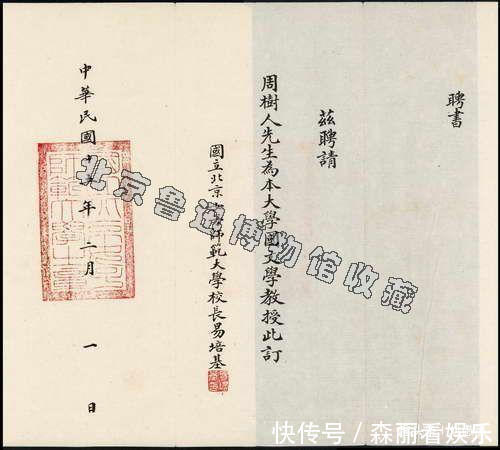 聘書
茲聘請
周樹人先生為本大學國文學教授此訂
國立北京 師範大學校長易培基
中華民國十 年二月一日
北京鲁迅博物馆收藏
快传号／森丽看娱乐